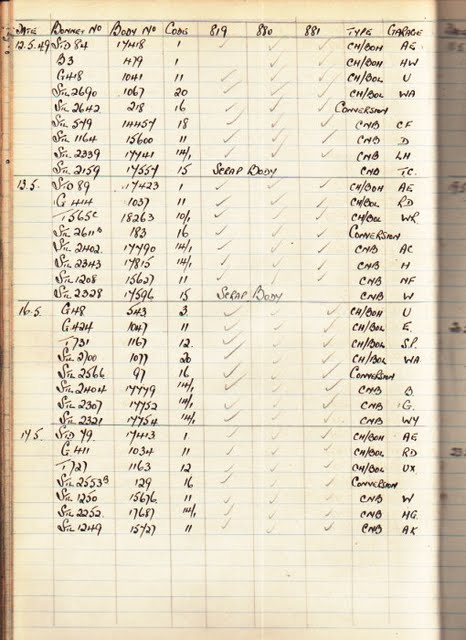 DATE BONNET NO BODY NO CODE 819 880 881 TYPE GARAGE
12.5.49 STD 84 17418 1 ✓ ✓ ✓ CH/BOH AE
B3 479 1 ✓ ✓ CH/BOH HW
G 418 1041 11 ✓ ✓ ✓ CH/BOL U
STL 2690 1067 20 ✓ ✓ ✓ CH/BOL WA
STL 2642 218 16 ✓ ✓ ✓ CONVERSION
STL 549 14457 18 ✓ ✓ ✓ CNB CF
STL 1164 15600 11 ✓ ✓ ✓ CNB D
STL 2339 17741 14/1 ✓ ✓ ✓ CNB LH
STL 2159 17557 15 SCRAP BODY CNB TC.
13.5. STD 89 17423 1 ✓ ✓ ✓ CH/BOH AE
G 414 1037 11 ✓ ✓ ✓ CH/BOL RD
T565C 18263 10/1 ✓ ✓ ✓ CH/BOL WR
STL 2611 183 16 ✓ ✓ ✓ CONVERSION
STL 2402 17790 14/1 ✓ ✓ ✓ CNB AC
STL 2343 17815 14/1 ✓ ✓ ✓ CNB H
STL 1208 15627 11 ✓ ✓ ✓ CNB NF
STL 2328 17596 15 SCRAP BODY CNB W
16.5. G48 543 3 ✓ ✓ ✓ CH/BOH U
G424 1047 11 ✓ ✓ ✓ CH/BOL E.
T731 1167 12 ✓ ✓ ✓ CH/BOL S.P.
STL 2700 1077 20 ✓ ✓ ✓ CH/BOL WA
STL 2566 97 16 ✓ ✓ ✓ CONVERSION
STL 2404 17779 14/1 ✓ ✓ ✓ CNB B.
STL 2307 17752 14/1 ✓ ✓ ✓ CNB G.
STL 2321 17754 14/1 ✓ ✓ ✓ CNB WY
17.5. STD 79 17413 1 ✓ ✓ ✓ CH/BOH AE
G 411 1034 11 ✓ ✓ ✓ CH/BOL RD
T727 1163 12 ✓ ✓ ✓ CH/BOL UX
STL 2553B 129 16 ✓ ✓ ✓ CONVERSION
STL 1250 15676 11 ✓ ✓ ✓ CNB W
STL 2252 17687 14/1 ✓ ✓ ✓ CNB HG.
STL 1249 15727 11 ✓ ✓ ✓ CNB AK